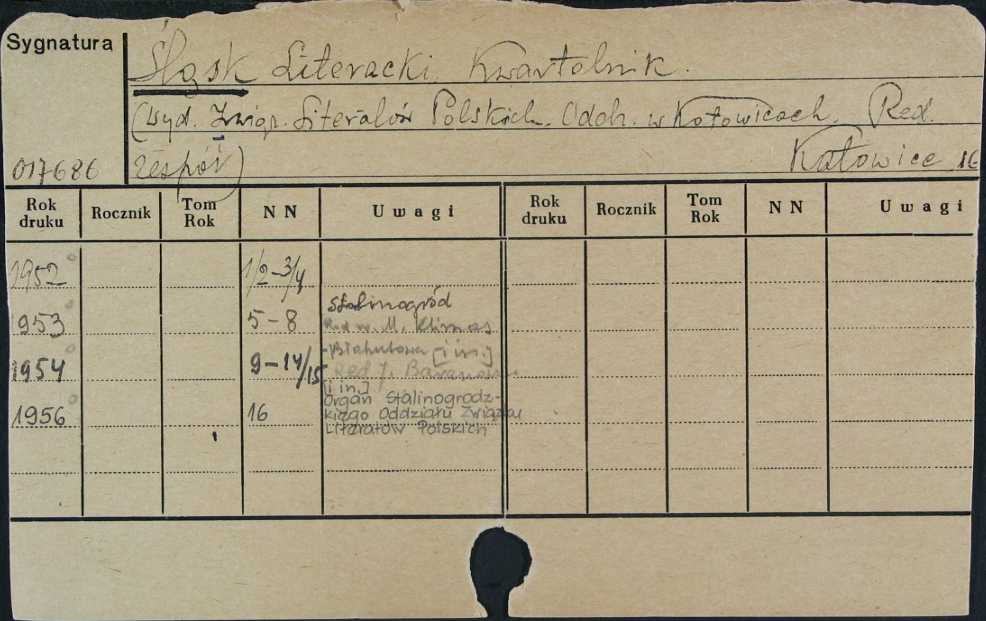 Sygnatura
Śląsk Literacki. Kwartalnik.
(Wyd. Związ. Literatów Polskich. Oddz. w Katowicach. Red.
017686 zespół) Katowice 16
Rok druku Rocznik Tom Rok NN Uwagi Rok druku Rocznik Tom Rok NN Uwagi
1952 1/2-3/4
Stalinogród
1953 5-8 Red. M. Klimas
-Błahutowa [i in.]
1954 9-14/15 Red. J. Baranowicz
[i in.]
Organ Stalinogrodz-
1956 16 kiego Oddziału Związku
Literatów Polskich